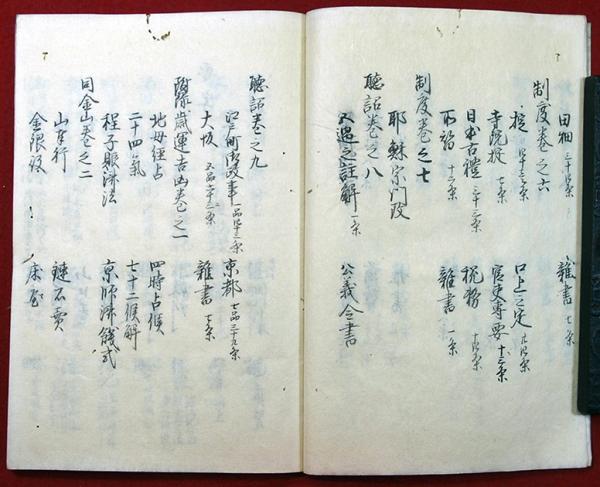 田畑 三十四条 雜書 七条
制度巻之六
掟 四十三条 口上之定 廿四条
寺院掟 七条 官吏専要 十三条
日本古禮 三十三条 税務 十四条
服 十六条 雜書 一条
制度巻之七
耶蘇宗門改
聴訟巻之八
又遺之註解 一条 公義令書
聴訟巻之九
江戸町御政事 一品 京都 七品三十九条
大坂 雜書 七条
歳運吉凶巻之一
地母經占 四時占候
二十四氣 七十二候解
程子賑濟法 京師濟饑式
同金山巻之二
山奉行 鏈石賣
金銀役 床屋